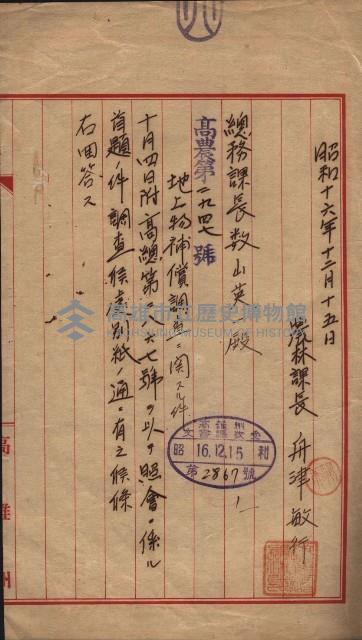 昭和十六年十二月十五日
農林課長 舟津敏行
總務課長数山英一殿
高農第二九四七號
地上物補償調査ニ関スル件
十月四日附高總第二六七號ヲ以テ照會ニ係ル
首題ノ件調査候処別紙ノ通ニ有之候條
右回答ス
高雄州
文書課收受
昭和 16.12.15
第2867號
高雄市立歷史博物館
KAOHSIUNG MUSEUM OF HISTORY
高雄州